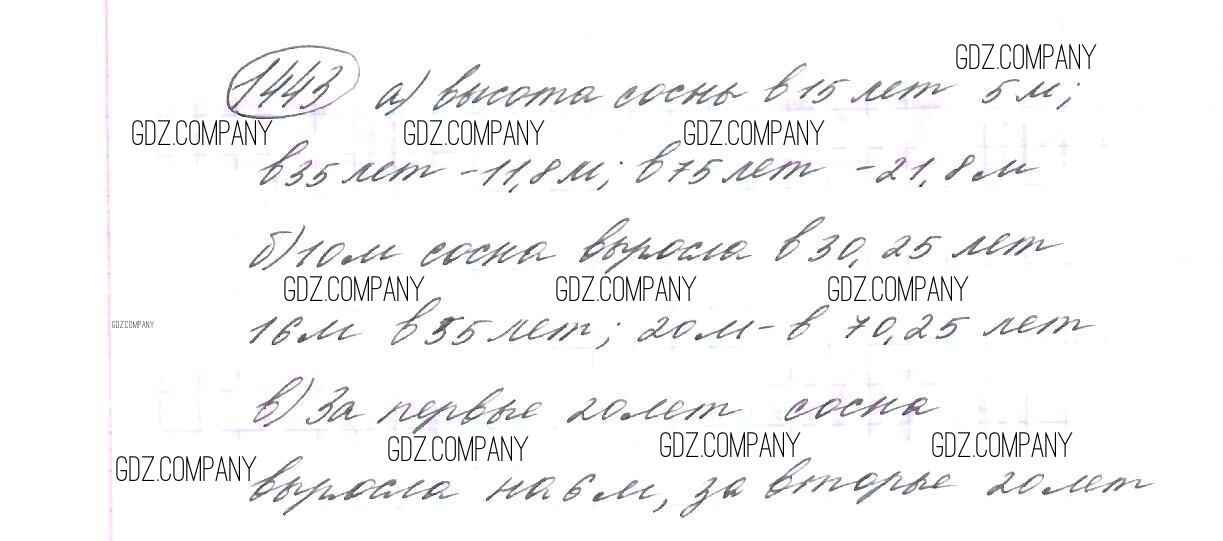 GDZ.COMPANY
1443 а) высота сосны в 15 лет 5 м;
GDZ.COMPANY GDZ.COMPANY GDZ.COMPANY
в 35 лет - 11,8 м; в 75 лет - 21,8 м
б) 10 м сосна выросла в 30,25 лет
GDZ.COMPANY GDZ.COMPANY GDZ.COMPANY
GDZ.COMPANY
16 м в 55 лет; 20 м - в 70,25 лет
в) За первые 20 лет сосна
GDZ.COMPANY GDZ.COMPANY GDZ.COMPANY GDZ.COMPANY
выросла на 6 м, за вторые 20 лет